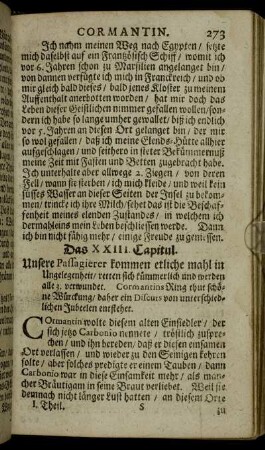 CORMANTIN. 273
Ich nahm meinen Weg nach Egypten / setzte
mich daselbst auf ein Französisch Schiff / womit ich
vor 6. Jahren schon zu Marsilien angelanget bin /
von dannen verfügte ich mich in Franckreich / und ob
mir gleich bald dieses / bald jenes Kloster zu meinem
Auffenthalt anerbotten worden / hat mir doch das
Leben dieser Geistlichen nimmer gefallen wollen / son-
dern ich habe so lange umher gewallet / biß ich endlich
vor 5. Jahren an diesen Ort gelanget bin / der mir
so wol gefallen / daß ich meine Elends-Hütte allhier
auffgeschlagen / und seithero in steter Bekümmernuß
meine Zeit mit Fasten und Betten zugebracht habe.
Ich unterhalte aber allwege 2. Ziegen / von deren
Fell / wann sie sterben / ich mich kleide / und weil kein
süsses Wasser an dieser Seiten der Insel zu bekom-
men / trincke ich ihre Milch / sehet das ist die Beschaf-
fenheit meines elenden Zustandes / in welchem ich
dermahleins mein Leben beschliessen werde. Dann
ich bin nicht fähig mehr / einige Freude zu geniessen.
Das XXIII. Capitul.
Unsere Passagierer kommen etliche mahl in
Ungelegenheit / retten sich kümmerlich und werden
alle 3. verwundet. Cormantins Ring thut schö-
ne Würckung / daher ein Discurs von unterschied-
lichen Jubeelen entstehet.
Cormantin wolte diesem alten Einsiedler / der
sich jetzo Carbonio nennete / tröstlich zuspre-
chen / und ihn bereden / daß er diesen einsamen
Ort verlassen / und wieder zu den Seinigen kehren
solte / aber solches predigte er einem Tauben / dann
Carbonio war in diese Einsamkeit mehr / als man-
cher Bräutigam in seine Braut verliebet. Weil sie
demnach nicht länger Lust hatten / an diesem Orte
I. Theil. S zu